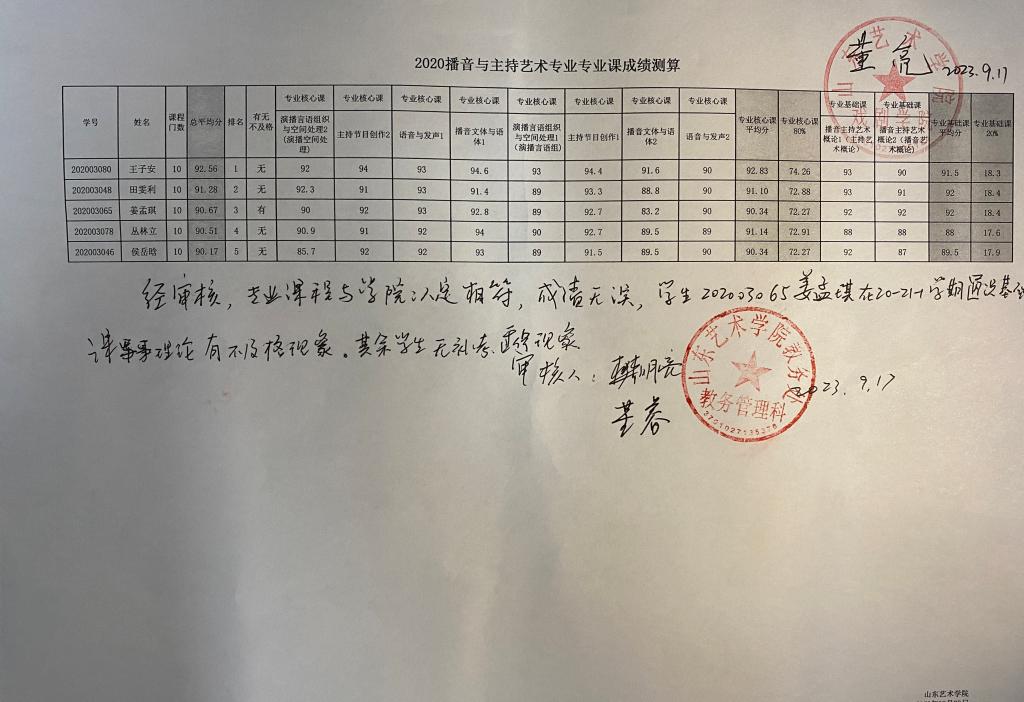 2020播音与主持艺术专业专业课成绩测算
董亮 2023.9.17
山东艺术学院
戏剧学院
学号 姓名 课程门数 总平均分 排名 有无不及格 专业核心课 专业核心课 专业核心课 专业核心课 专业核心课 专业核心课 专业核心课 专业核心课 专业核心课平均分 专业核心课80% 专业基础课 专业基础课 专业基础课平均分 专业基础课20%
演播言语组织与空间处理2(演播空间处理) 主持节目创作2 语音与发声1 播音文体与语体1 演播言语组织与空间处理1(演播言语组) 主持节目创作1 播音文体与语体2 语音与发声2 播音主持艺术概论1(主持艺术概论) 播音主持艺术概论2(播音艺术概论)
202003080 王子安 10 92.56 1 无 92 94 93 94.6 93 94.4 91.6 90 92.83 74.26 93 90 91.5 18.3
202003048 田雯利 10 91.28 2 无 92.3 91 93 91.4 89 93.3 88.8 90 91.10 72.88 93 91 92 18.4
202003065 姜孟琪 10 90.67 3 有 90 92 93 92.8 89 92.7 83.2 90 90.34 72.27 92 92 92 18.4
202003078 丛林立 10 90.51 4 无 90.9 91 92 94 90 92.7 89.5 89 91.14 72.91 88 88 88 17.6
202003046 侯岳晗 10 90.17 5 无 85.7 92 92 93 89 91.5 89.5 90 90.34 72.27 92 87 89.5 17.9
经审核，专业课程与学院认定相符，成绩无误，学生202003065姜孟琪在20-21-1学期通识基础
课军事理论有不及格现象。其余学生无补考、重修现象
审核人：樊明亮
董蓉
2023.9.17
山东艺术学院教务处
教务管理科
3701027135376
山东艺术学院